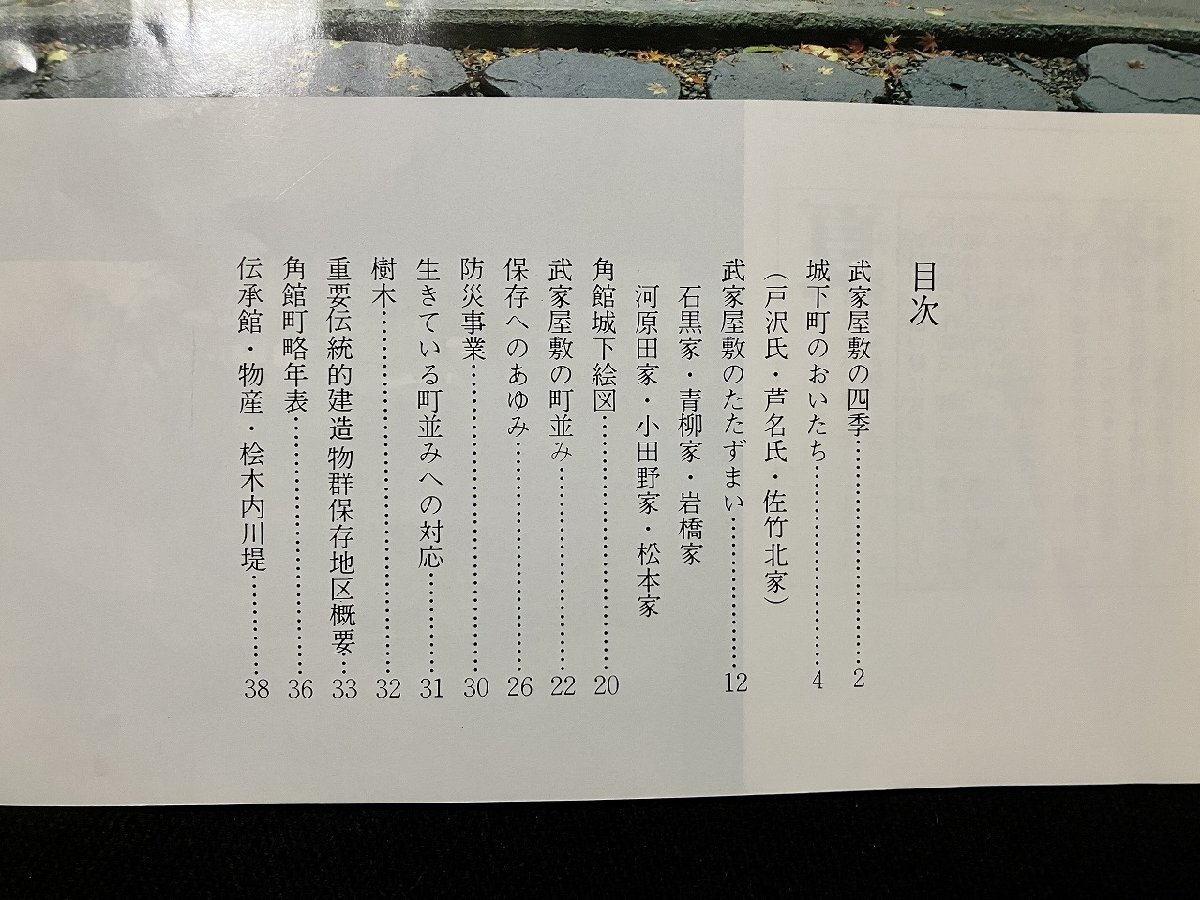 目次
武家屋敷の四季……………………2
城下町のおいたち……………………4
(戸沢氏・芦名氏・佐竹北家)
武家屋敷のたたずまい……………12
石黒家・青柳家・岩橋家
河原田家・小田野家・松本家
角館城下絵図……………………20
武家屋敷の町並み……………………22
保存へのあゆみ……………………26
防災事業……………………………30
生きている町並みへの対応…………31
樹木…………………………………32
重要伝統的建造物群保存地区概要…33
角館町略年表……………………36
伝承館・物産・桧木内川堤…………38